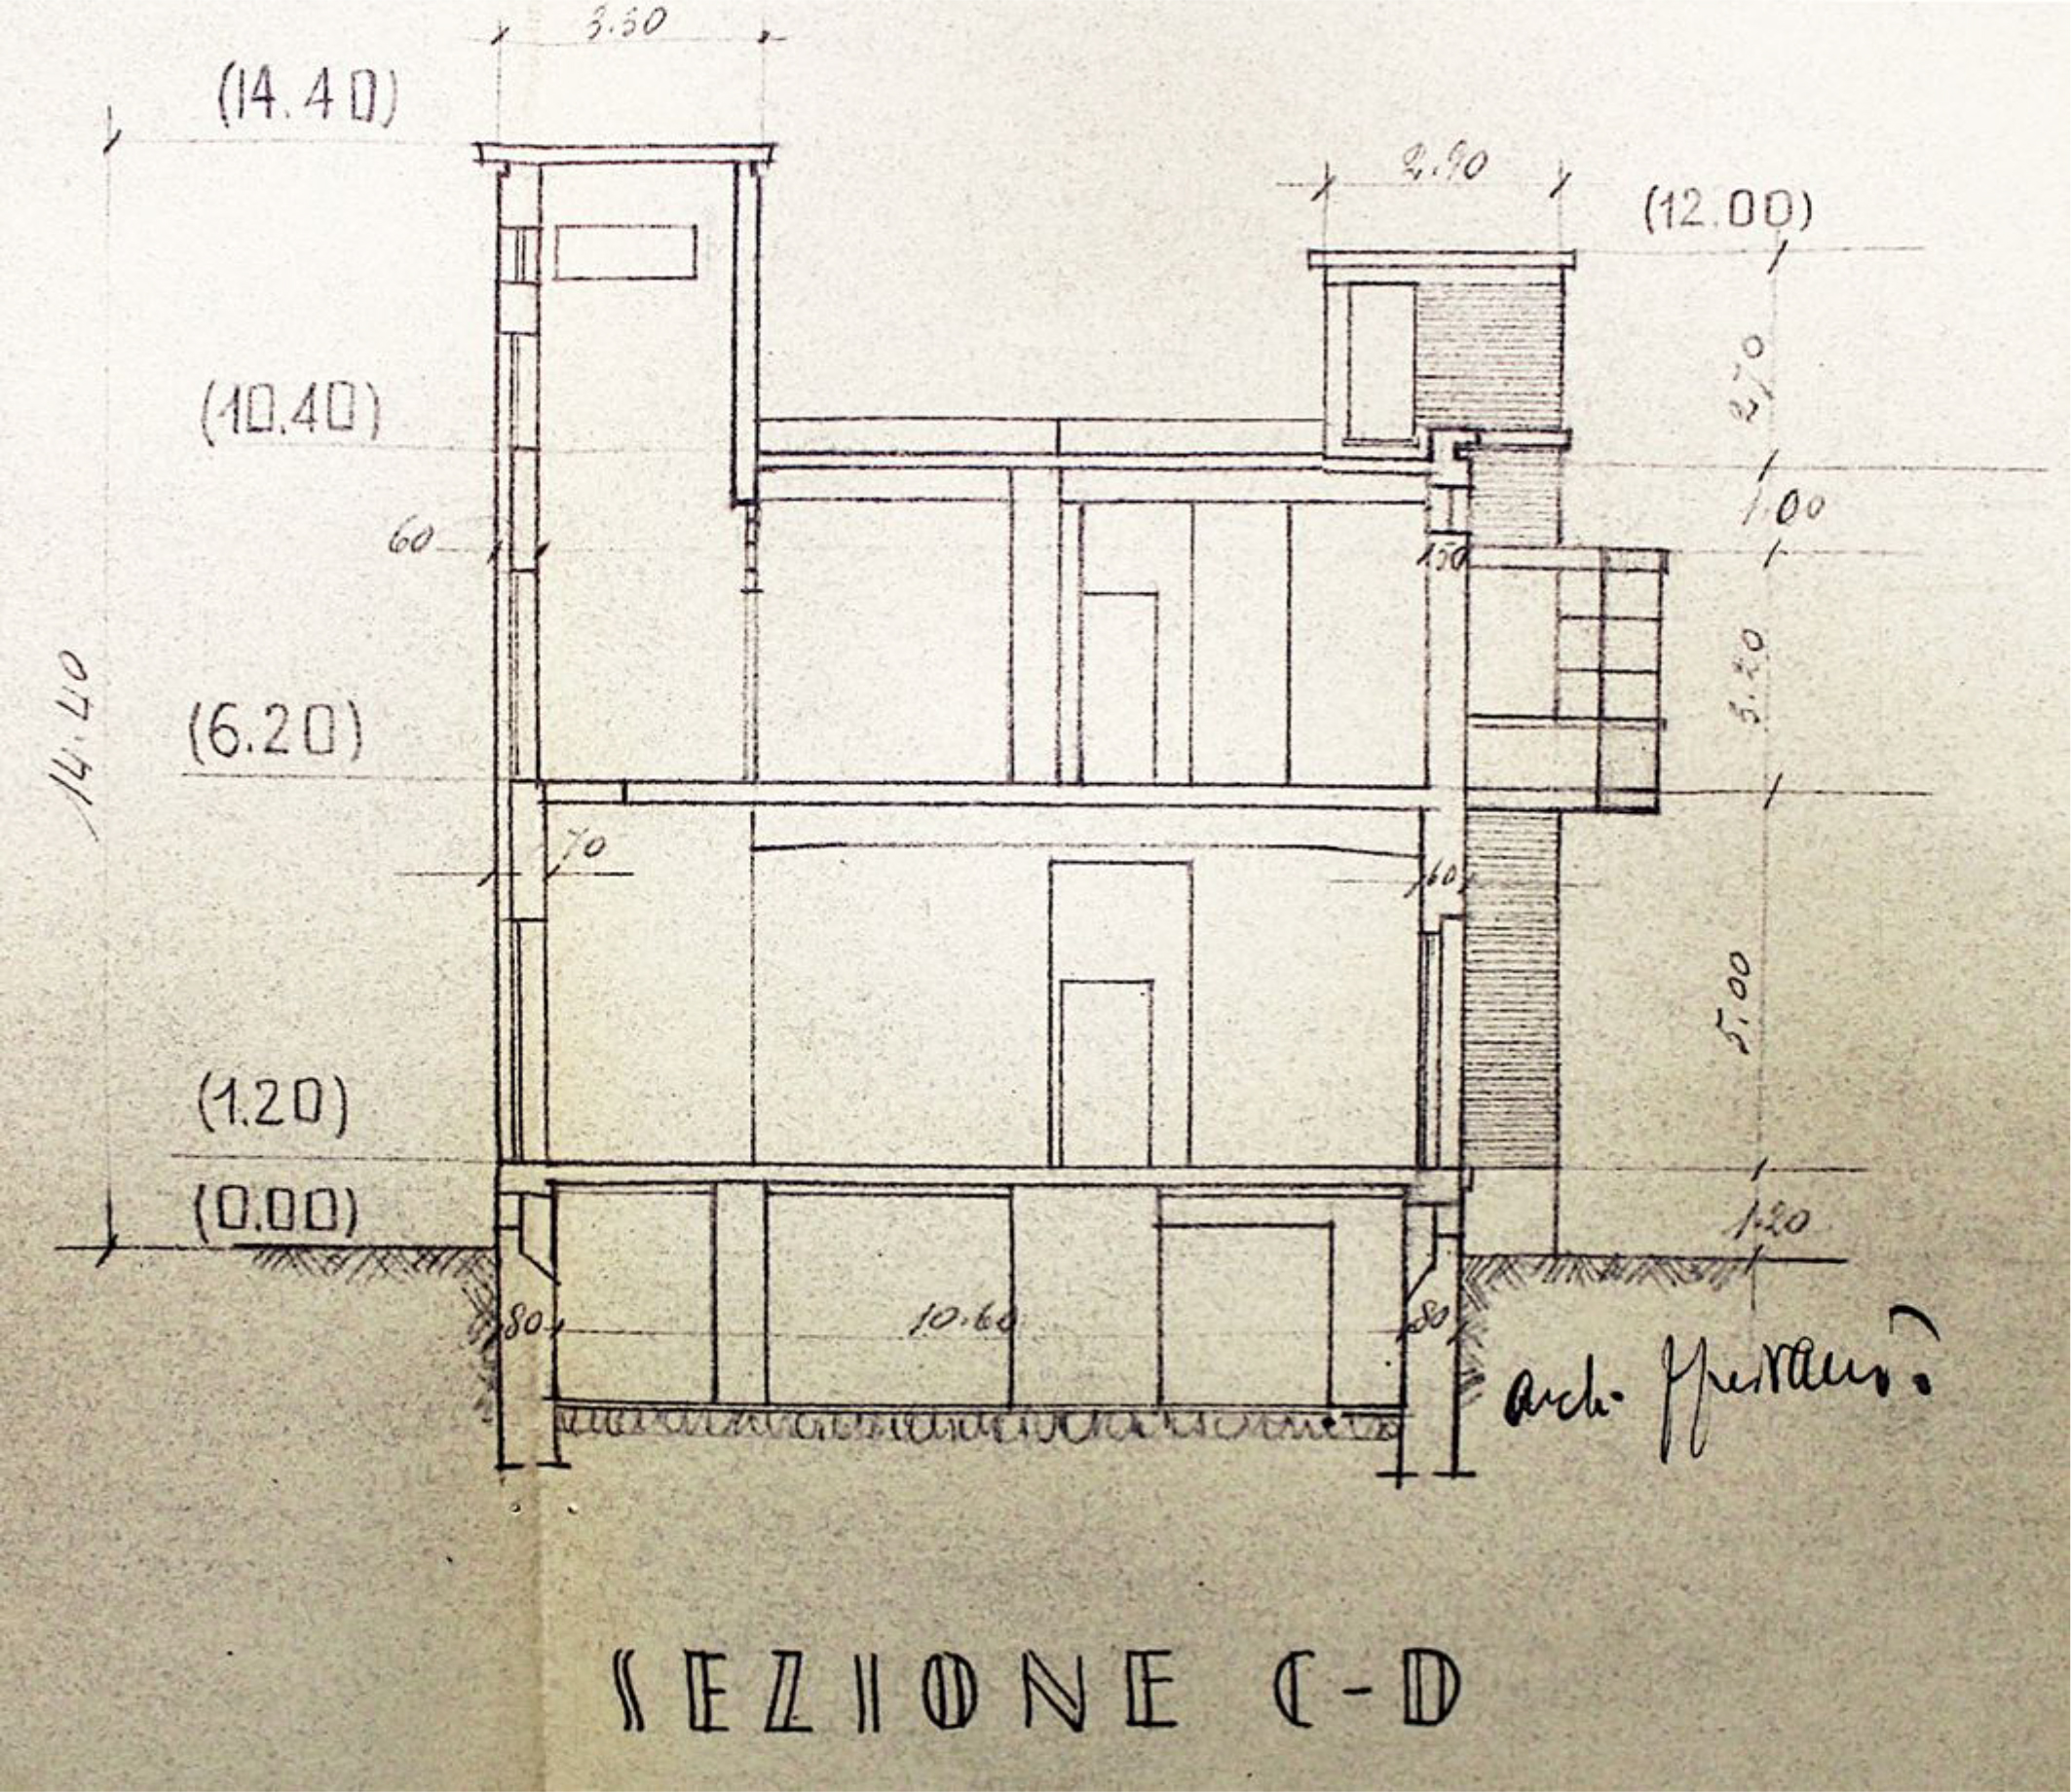 3.30
(14.40)
2.90
(12.00)
2,70
(10.40)
1.00
60
150
3.20
14.40
(6.20)
70
60
5.00
(1.20)
(0.00)
1.20
80
10.60
80
arch.
SEZIONE C-D